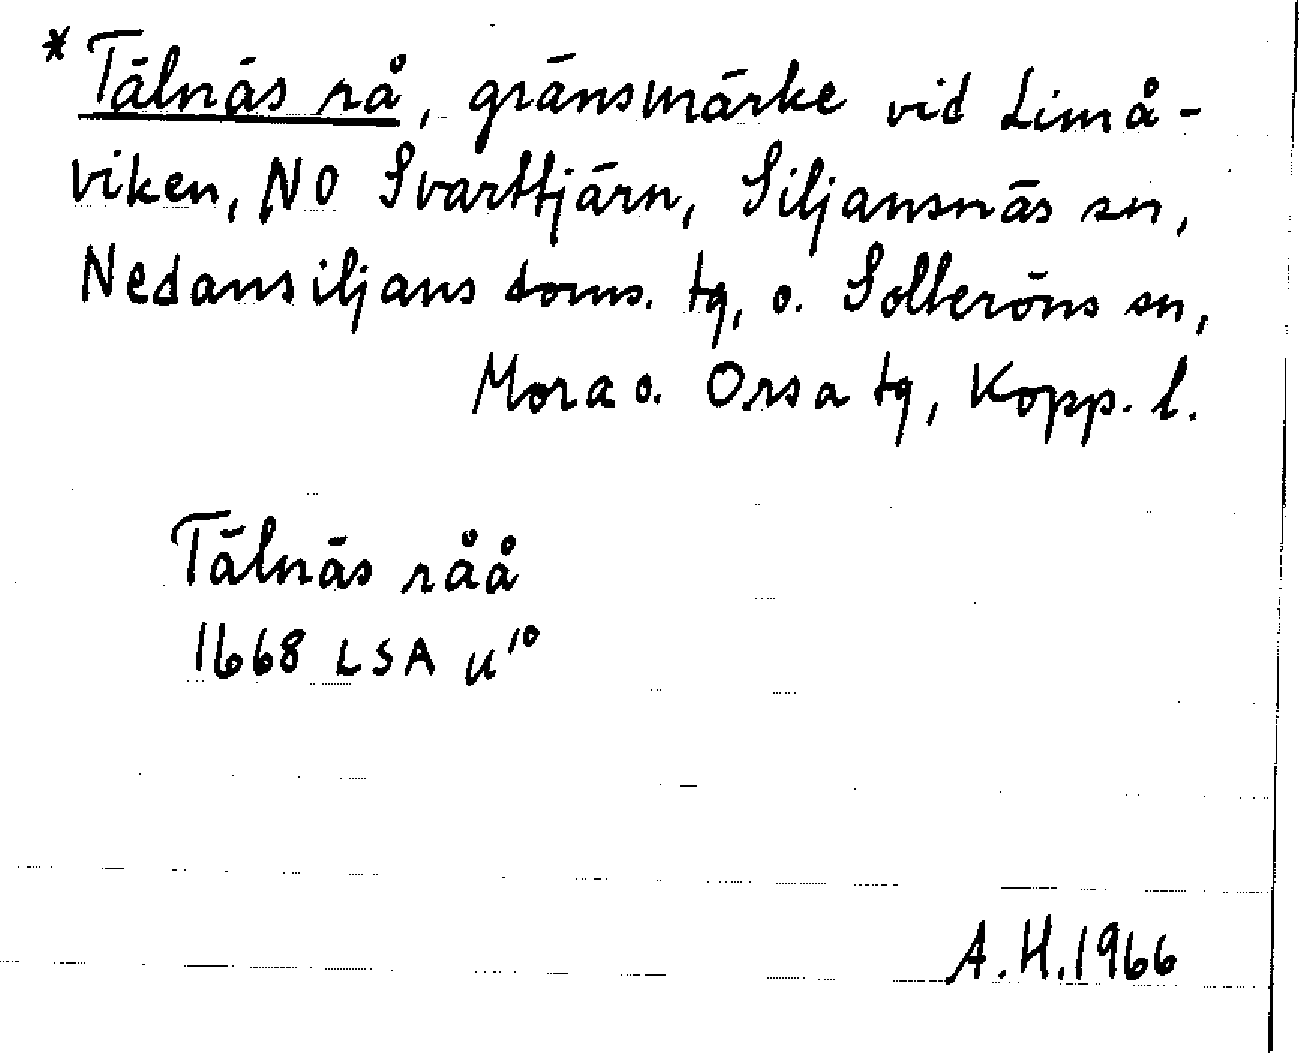 * Tälnäs rå, gränsmärke vid Limå-
viken, NO Svarttjärn, Siljansnäs sn,
Nedansiljans doms. tg, o. Solleröns sn,
Mora o. Orsa tg, Kopp. l.
Tälnäs råå
1668 LSA u¹⁰
A. H. 1966